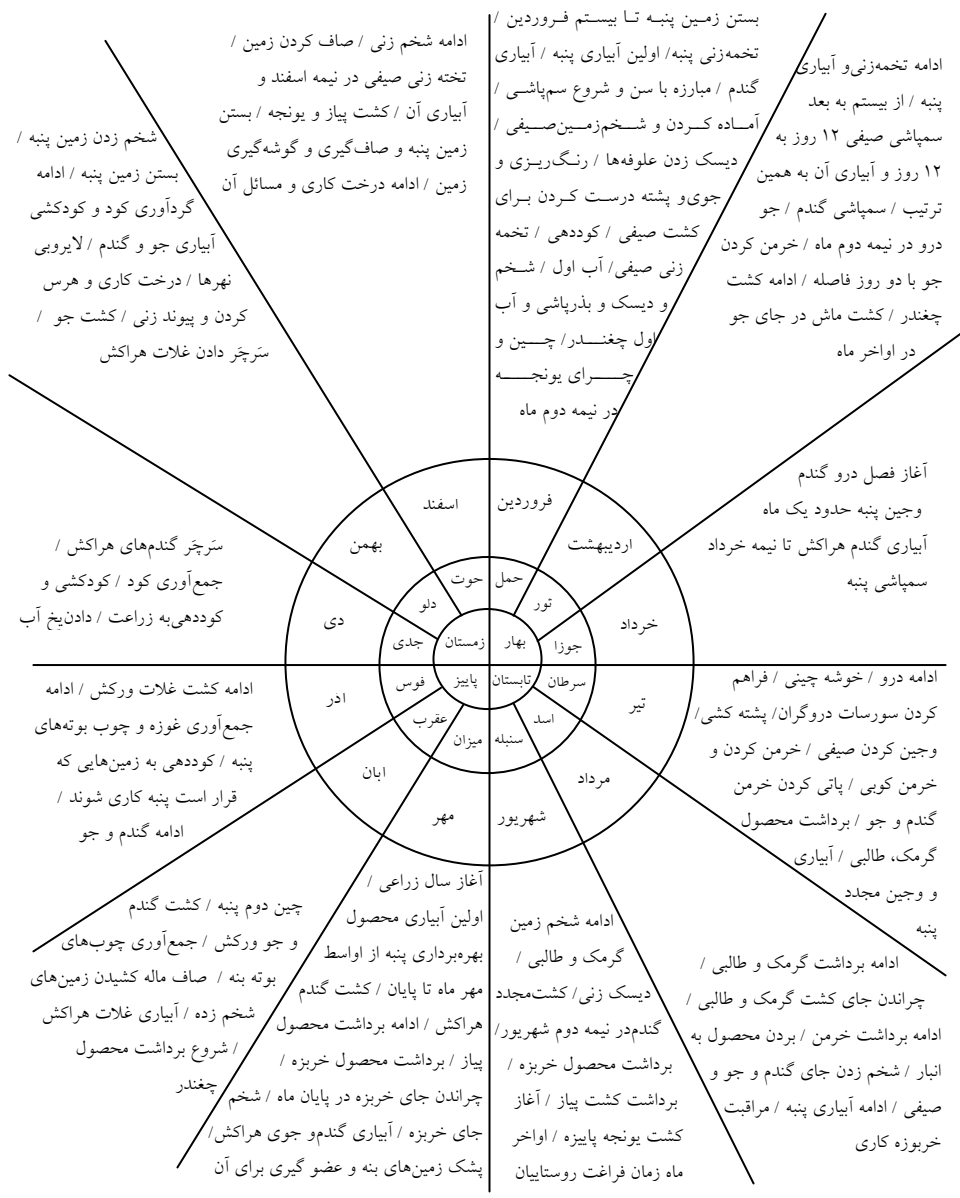 بستن زمین پنبه تا بیستم فروردین /
تخمه‌زنی پنبه/ اولین آبیاری پنبه / آبیاری
گندم / مبارزه با سن و شروع سم‌پاشی /
آماده کردن و شخم‌زمین‌صیفی /
دیسک زدن علوفه‌ها / رنگ‌ریزی و
جوی‌و پشته درست کردن برای
کشت صیفی / کوددهی / تخمه
زنی صیفی/ آب اول / شخم
و دیسک و بذرپاشی و آب
اول چغندر/ چین و
چرای یونجه
در نیمه دوم ماه
ادامه تخمه‌زنی‌و آبیاری
پنبه / از بیستم به بعد
سمپاشی صیفی ۱۲ روز به
۱۲ روز و آبیاری آن به همین
ترتیب / سمپاشی گندم / جو
درو در نیمه دوم ماه / خرمن کردن
جو با دو روز فاصله / ادامه کشت
چغندر / کشت ماش در جای جو
در اواخر ماه
آغاز فصل درو گندم
وجین پنبه حدود یک ماه
آبیاری گندم هراکش تا نیمه خرداد
سمپاشی پنبه
ادامه درو / خوشه چینی / فراهم
کردن سورسات دروگران/ پشته کشی/
وجین کردن صیفی / خرمن کردن و
خرمن کوبی / پاتی کردن خرمن
گندم و جو / برداشت محصول
گرمک، طالبی / آبیاری
و وجین مجدد
پنبه
ادامه برداشت گرمک و طالبی /
چراندن جای کشت گرمک و طالبی /
ادامه برداشت خرمن / بردن محصول به
انبار / شخم زدن جای گندم و جو و
صیفی / ادامه آبیاری پنبه / مراقبت
خربوزه کاری
ادامه شخم زمین
گرمک و طالبی /
دیسک زنی/ کشت‌مجدد
گندم‌در نیمه دوم شهریور/
برداشت محصول خربزه /
برداشت کشت پیاز / آغاز
کشت یونجه پاییزه / اواخر
ماه زمان فراغت روستاییان
آغاز سال زراعی /
اولین آبیاری محصول
بهره‌برداری پنبه از اواسط
مهر ماه تا پایان / کشت گندم
هراکش / ادامه برداشت محصول
پیاز / برداشت محصول خربزه /
چراندن جای خربزه در پایان ماه / شخم
جای خربزه / آبیاری گندم‌و جوی هراکش/
پشک زمین‌های بنه و عضو گیری برای آن
چین دوم پنبه / کشت گندم
و جو ورکش / جمع‌آوری چوب‌های
بوته بنه / صاف ماله کشیدن زمین‌های
شخم زده / آبیاری غلات هراکش
/ شروع برداشت محصول
چغندر
ادامه کشت غلات ورکش / ادامه
جمع‌آوری غوزه و چوب بوته‌های
پنبه / کوددهی به زمین‌هایی که
قرار است پنبه کاری شوند /
ادامه گندم و جو
سَرچَر گندم‌های هراکش /
جمع‌آوری کود / کودکشی و
کوددهی‌به زراعت / دادن‌یخ آب
شخم زدن زمین پنبه /
بستن زمین پنبه / ادامه
گردآوری کود و کودکشی
آبیاری جو و گندم / لایروبی
نهرها / درخت کاری و هرس
کردن و پیوند زنی / کشت جو /
سَرچَر دادن غلات هراکش
ادامه شخم زنی / صاف کردن زمین /
تخته زنی صیفی در نیمه اسفند و
آبیاری آن / کشت پیاز و یونجه / بستن
زمین پنبه و صاف‌گیری و گوشه‌گیری
زمین / ادامه درخت کاری و مسائل آن
فروردین
اردیبهشت
خرداد
تیر
مرداد
شهریور
مهر
ابان
اذر
دی
بهمن
اسفند
حمل
تور
جوزا
سرطان
اسد
سنبله
میزان
عقرب
فوس
جدی
دلو
حوت
بهار
تابستان
پاییز
زمستان